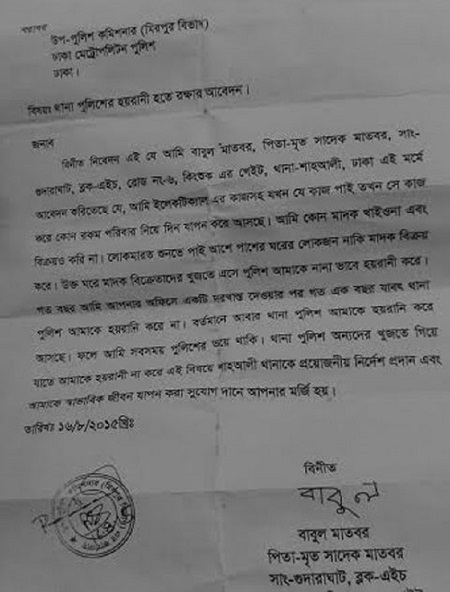 বরাবর
উপ-পুলিশ কমিশনার (মিরপুর বিভাগ)
ঢাকা মেট্রোপলিটন পুলিশ
ঢাকা।
বিষয়ঃ থানা পুলিশের হয়রানী হতে রক্ষার আবেদন।
জনাব
বিনীত নিবেদন এই যে আমি বাবুল মাতবর, পিতা-মৃত সাদেক মাতবর, সাং-
গুদারাঘাট, ব্লক-এইচ, রোড নং-৬, কিংশুক এর গেইট, থানা-শাহআলী, ঢাকা এই মর্মে
আবেদন করিতেছে যে, আমি ইলেকটিকাল এর কাজসহ যখন যে কাজ পাই তখন সে কাজ
করে কোন রকম পরিবার নিয়ে দিন যাপন করে আসছে। আমি কোন মাদক খাইওনা এবং
বিক্রয়ও করি না। লোকমারত শুনতে পাই আশে পাশের ঘরের লোকজন নাকি মাদক বিক্রয়
করে। উক্ত ঘরে মাদক বিক্রেতাদের খুজতে এসে পুলিশ আমাকে নানা ভাবে হয়রানী করে।
গত বছর আমি আপনার অফিসে একটি দরখাস্ত দেওয়ার পর গত এক বছর যাবৎ থানা
পুলিশ আমাকে হয়রানি করে না। বর্তমানে আবার থানা পুলিশ আমাকে হয়রানি করে
আসছে। ফলে আমি সবসময় পুলিশের ভয়ে থাকি। থানা পুলিশ অন্যদের খুজতে গিয়ে
যাতে আমাকে হয়রানী না করে এই বিষয়ে শাহআলী থানাকে প্রয়োজনীয় নির্দেশ প্রদান এবং
আমাকে স্বাভাবিক জীবন যাপন করা সুযোগ দানে আপনার মর্জি হয়।
তারিখঃ ১৬/৮/২০১৫খ্রিঃ
বিনীত
বাবুল
বাবুল মাতবর
পিতা-মৃত সাদেক মাতবর
সাং-গুদারাঘাট, ব্লক-এইচ